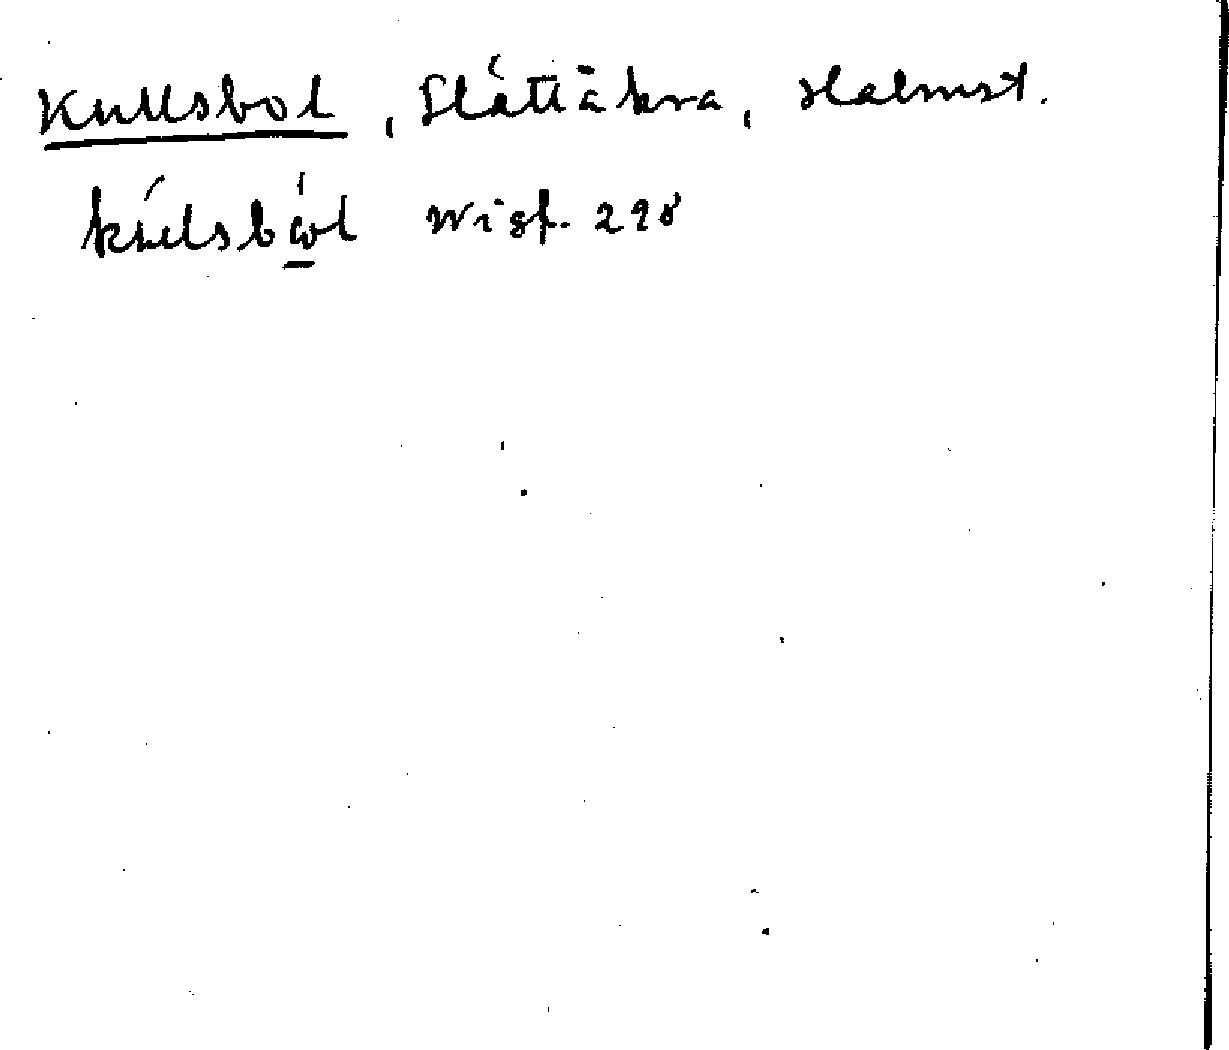 Kullsbol, Slättåkra, Halmst.
kúlsbώ̲l Wigf. 298